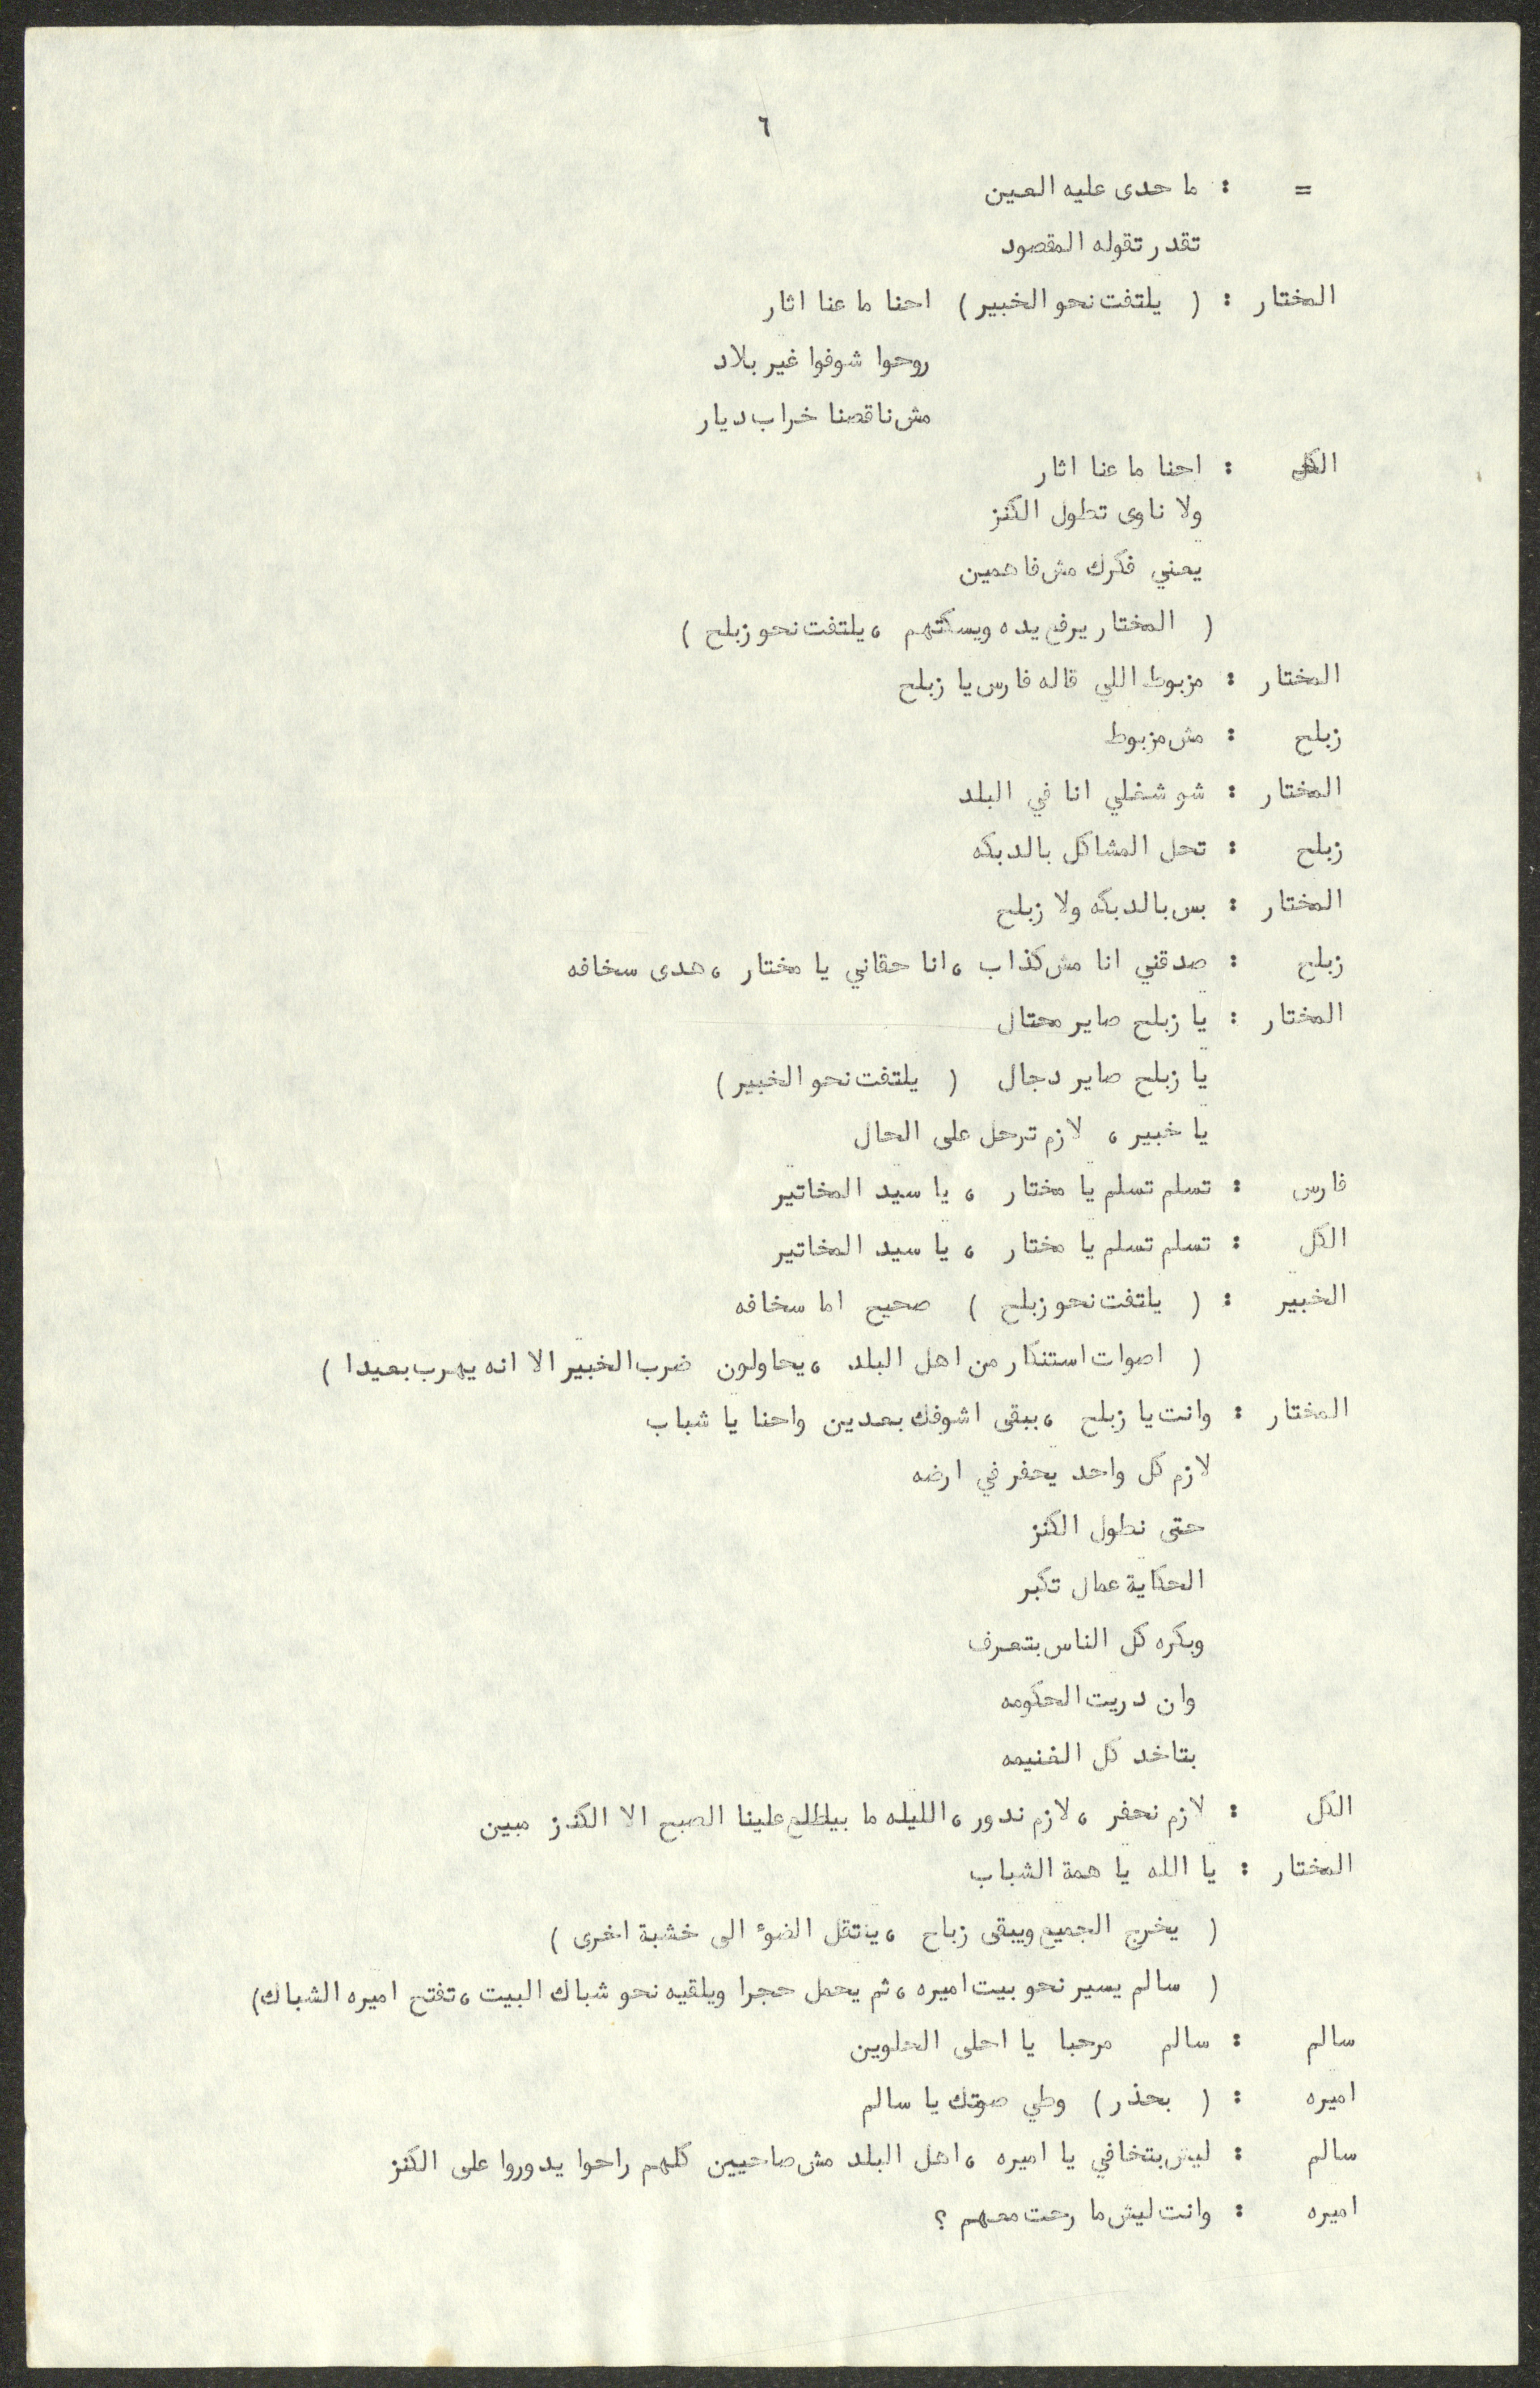 ٦
= : ما حدى عليه العين
تقدر تقوله المقصود
المختار : ( يلتفت نحو الخبير ) احنا ما عنا اثار
روحوا شوفوا غير بلاد
مش ناقصنا خراب ديار
الكل : احنا ما عنا اثار
ولا ناوى تطول الكنز
يعني فكرك مش فاهمين
( المختار يرفع يده ويسكتهم ، يلتفت نحو زبلح )
المختار : مزبوط اللي قاله فارس يا زبلح
زبلح : مش مزبوط
المختار : شو شغلي انا في البلد
زبلح : تحل المشاكل بالدبكه
المختار : بس بالدبكه ولا زبلح
زبلح : صدقني انا مش كذاب ، انا حقاني يا مختار ، هدى سخافه
المختار : يا زبلح صاير محتال
يا زبلح صاير دجال ( يلتفت نحو الخبير )
يا خبير ، لازم ترحل على الحال
فارس : تسلم تسلم يا مختار ، يا سيد المخاتير
الكل : تسلم تسلم يا مختار ، يا سيد المخاتير
الخبير : ( يلتفت نحو زبلح ) صحيح اما سخافه
( اصوات استنكار من اهل البلد ، يحاولون ضرب الخبير الا انه يهرب بعيدا )
المختار : وانت يا زبلح ، ببقى اشوفك بعدين واحنا يا شباب
لازم كل واحد يحفر في ارضه
حتى نطول الكنز
الحكاية عمال تكبر
وبكره كل الناس بتعرف
وان دريت الحكومه
بتاخد كل الغنيمه
الكل : لازم نحفر ، لازم ندور ، الليله ما بيطلع علينا الصبح الا الكنز مبين
المختار : يا الله يا همة الشباب
( يخرج الجميع ويبقى زباح ، ينتقل الضوء الى خشبة اخرى )
( سالم يسير نحو بيت اميره ، ثم يحمل حجرا ويلقيه نحو شباك البيت ، تفتح اميره الشباك )
سالم : سالم مرحبا يا احلى الحلوين
اميره : ( بحذر ) وطي صوتك يا سالم
سالم : ليش بتخافي يا اميره ، اهل البلد مش صاحيين كلهم راحوا يدوروا على الكنز
اميره : وانت ليش ما رحت معهم ؟